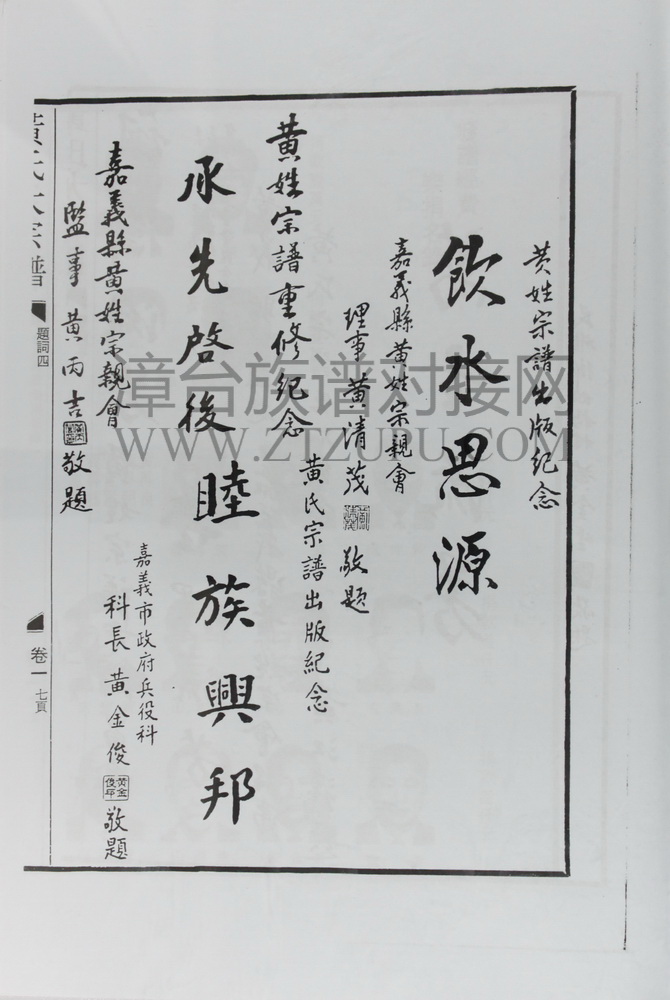 黄姓宗譜出版紀念
飲水思源
嘉義縣黄姓宗親會
理事黄清茂
敬題
黄姓宗譜重修紀念
承先啓後
嘉義縣黄姓宗親會
監事黄丙吉
敬題
黄氏宗譜出版紀念
睦族興邦
嘉義市政府兵役科
科長黄金俊
黄金俊印
敬題
題詞四
卷一
七頁
漳台族谱对接网
WWW.ZTZUPU.COM